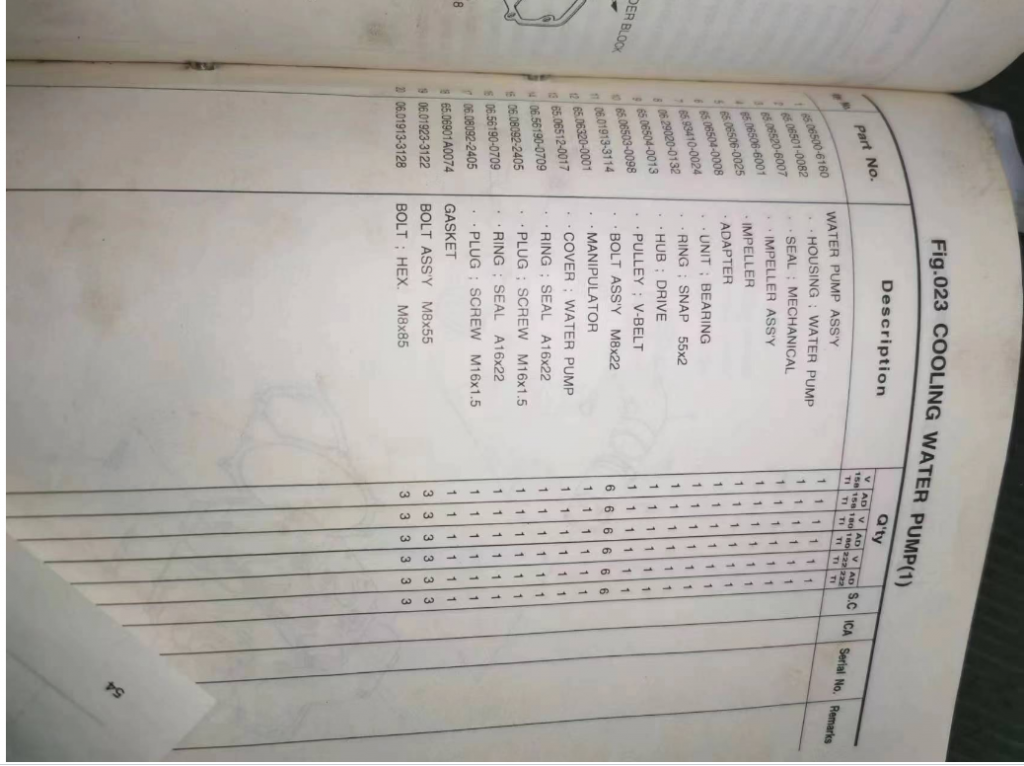 DER BLOCK
8
Fig.023 COOLING WATER PUMP(1)
Part No. Description Q'ty S.C ICA Serial No. Remarks
V AD V AD V AD
158 158 180 180 222 222
TI TI TI TI TI TI
1 65.06500-6160 WATER PUMP ASS'Y 1 1 1 1 1 1
2 65.06501-0082 · HOUSING ; WATER PUMP 1 1 1 1 1 1
3 65.06520-6007 · SEAL ; MECHANICAL 1 1 1 1 1 1
4 65.06506-6001 · IMPELLER ASS'Y 1 1 1 1 1 1
5 65.06506-0025 · IMPELLER 1 1 1 1 1 1
6 65.06504-0008 · ADAPTER 1 1 1 1 1 1
7 65.93410-0024 · UNIT ; BEARING 1 1 1 1 1 1
8 06.29020-0132 · RING ; SNAP 55x2 1 1 1 1 1 1
9 65.06504-0013 · HUB ; DRIVE 1 1 1 1 1 1
10 65.06503-0098 · PULLEY ; V-BELT 1 1 1 1 1 1
11 06.01913-3114 · BOLT ASS'Y M8x22 6 6 6 6 6 6
12 65.06320-0001 · MANIPULATOR 1 1 1 1 1 1
13 65.06512-0017 · COVER ; WATER PUMP 1 1 1 1 1 1
14 06.56190-0709 · RING ; SEAL A16x22 1 1 1 1 1 1
15 06.08092-2405 · PLUG ; SCREW M16x1.5 1 1 1 1 1 1
16 06.56190-0709 · RING ; SEAL A16x22 1 1 1 1 1 1
17 06.08092-2405 · PLUG ; SCREW M16x1.5 1 1 1 1 1 1
18 65.06901A0074 GASKET 1 1 1 1 1 1
19 06.01923-3122 BOLT ASS'Y M8x55 3 3 3 3 3 3
20 06.01913-3128 BOLT ; HEX. M8x85 3 3 3 3 3 3
54